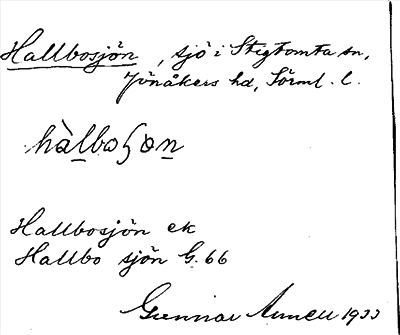 Hallbosjön, sjö i Stigtomta sn,
Jönåkers hd, Sörml. l.
hàlboʃön
Hallbosjön ek
Hallbo sjön G. 66
Gunnar Annell 1933